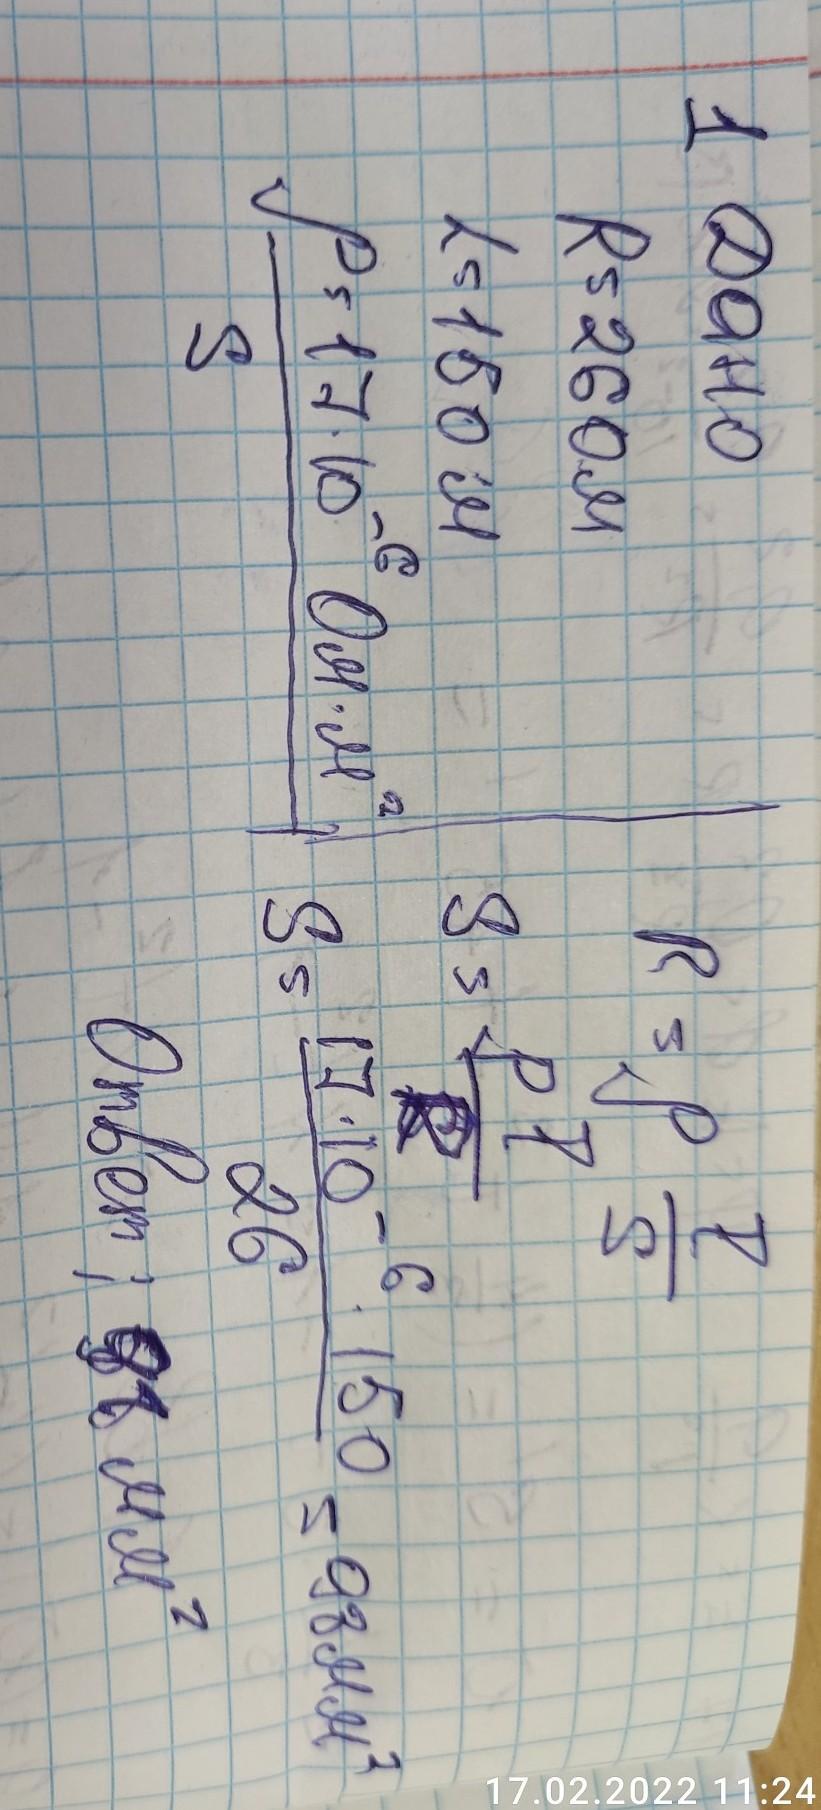 1 Дано
R=26Ом
L=150 м
ρ=17·10⁻⁶ Ом·м²
S
R=ρ l/S
S=ρl/R
S=17·10⁻⁶·150/26=98мм²
Ответ; мм²
17.02.2022 11:24